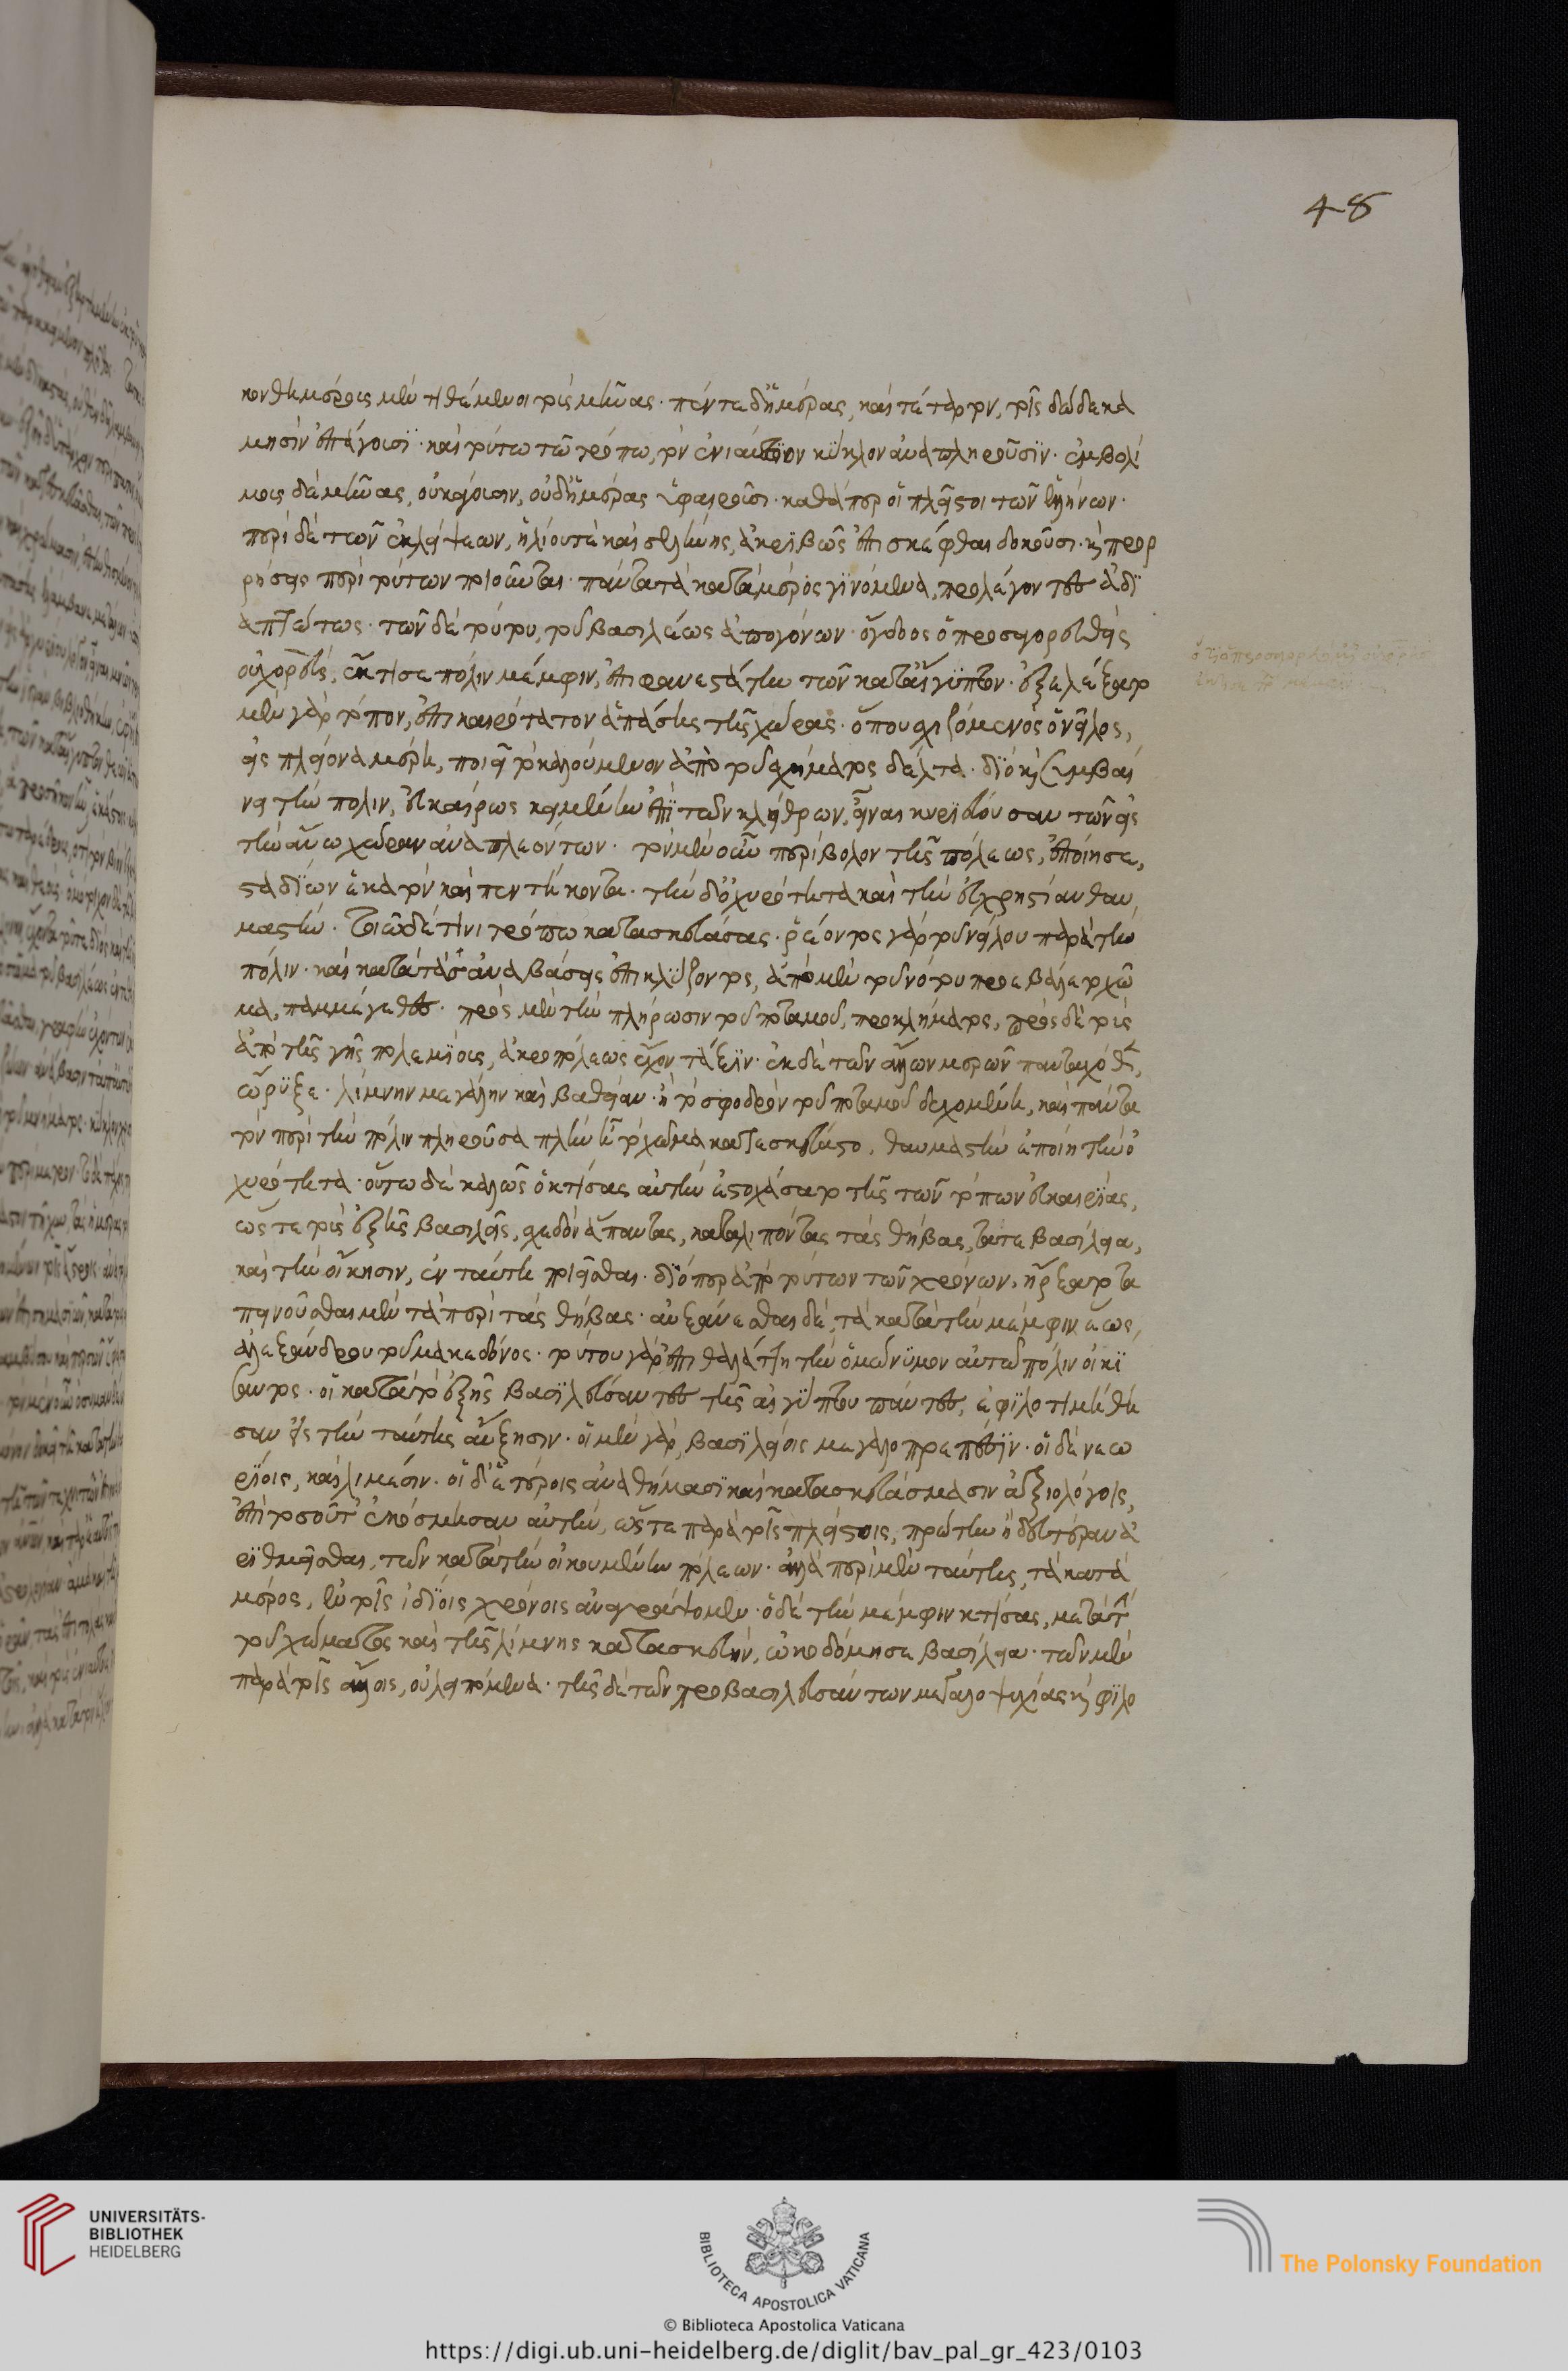 48
κονθημέροις μὲν τιθέμενοι τοὺς μῆνας· πέντε δ' ἡμέρας, καὶ τέταρτον, τοῖς δώδεκα
μησὶν ἐπάγουσϊ· καὶ τούτω τῶ τρόπω, τὸν ἐνιαύσϊον κύκλον ἀναπληροῦσϊν· ἐμβολί
μους δὲ μῆνας, οὐκ ἄγουσιν, οὐδ' ἡμέρας ὑφαιροῦσι· καθάπερ οἱ πλεῖστοι τῶν ἑλλήνων·
περὶ δὲ τῶν ἐκλείψεων, ἡλίου τὲ καὶ σελήνης, ἀκριβῶς ἐπεσκέφθαι δοκοῦσι· κὶ προρ
ρήσεις περὶ τούτων ποιοῦνται· πάντα τὰ κατὰ μέρος γϊνόμενα, προλέγοντες ἀδϊ
απτώτως· τῶν δὲ τούτου, τοῦ βασιλέως ἀπογόνων· ὄγδοος ὁ προσαγορευθεὶς
οὐχορεὺς, ἔκτισε πόλιν μέμφιν, ἐπιφανεστάτην τῶν κατ' αἴγϋπτον· ἐξελέξατο
μὲν γὰρ τόπον, ἐπικαιρότατον ἁπάσης τῆς χώρας· ὅπου σχιζόμενος ὁ νεῖλος,
εἰς πλείονα μέρη, ποιεῖ τὸ καλούμενον ἀπὸ τοῦ σχήματος δέλτα· δϊὸ κὶ συμβαί
νει τὴν πόλιν, εὐκαίρως κειμένην ἐπὶ τῶν κλείθρων, εἶναι κυρϊεύουσαν τῶν εἰς
τὴν ἄνω χώραν ἀναπλεόντων· τὸν μὲν οὖν περίβολον τῆς πόλεως, ἐποίησε,
σταδίων ἑκατὸν καὶ πεντήκοντα· τὴν δ' ὀχυρότητα καὶ τὴν εὐχρηστίαν θαυ
μαστὴν· τοιῶδέ τινι τρόπω κατασκευάσας· ῥέοντος γὰρ τοῦ νείλου παρὰ τὴν
πόλιν· καὶ κατὰ τὰς ἀναβάσεις ἐπικλύζοντος, ἀπὸ μὲν τοῦ νότου προεβάλετο χῶ
μα, παμμέγεθες· πρὸς μὲν τὴν πλήρωσιν τοῦ ποταμοῦ, προκλήματος, πρὸς δὲ τοὺς
ἀπὸ τῆς γῆς πολεμίους, ἀκροπόλεως ἔχον τάξϊν· ἐκ δὲ τῶν ἄλλων μερῶν πανταχόθεν,
ὤρϋξε· λίμνην μεγάλην καὶ βαθεῖαν· ἣ τὸ σφοδρὸν τοῦ ποταμοῦ δεχομένη, καὶ πάντα
τὸν περὶ τὴν πόλιν πληροῦσα πλὴν ᾗ τὸ χῶμα κατεσκεύαστο, θαυμαστὴν ἐποίει τὴν ὀ
χυρότητα· οὕτω δὲ καλῶς ὁ κτίσας αὐτὴν ἐστοχάσατο τῆς τῶν τόπων εὐκαιρίας,
ὥστε τοὺς ἑξῆς βασιλεῖς, σχεδὸν ἅπαντας, καταλιπόντας τὰς θήβας, τάτε βασίλεια,
καὶ τὴν οἴκησιν, ἐν ταύτη ποιεῖσθαι· δϊόπερ ἀπὸ τούτων τῶν χρόνων, ἤρξατο τα
πεινοῦσθαι μὲν τὰ περὶ τὰς θήβας· αὐξάνεσθαι δὲ, τὰ κατὰ τὴν μέμφιν ἕως,
ἀλεξάνδρου τοῦ μακεδόνος· τούτου γὰρ ἐπὶ θαλάττη τὴν ὁμώνϋμον αὐτῶ πόλιν οἰκί
σαντος· οἱ κατὰ τὸ ἑξῆς βασϊλεύσαντες τῆς αἰγύπτου πάντες, ἐφϊλοτιμήθη
σαν εἰς τὴν ταύτης αὔξησιν· οἱ μὲν γὰρ, βασϊλείοις μεγαλοπρεπέσϊν· οἱ δὲ νεω
ρίοις, καὶ λιμέσιν· οἱ δ' ἑτέροις ἀναθήμασϊ καὶ κατασκευάσμασιν ἀξιολόγοις,
ἐπὶ τοσοῦτ' ἐκόσμησαν αὐτὴν, ὥστε παρὰ τοῖς πλείστοις, πρώτην ἢ δευτέραν ἀ
ρϊθμεῖσθαι, τῶν κατὰ τὴν οἰκουμένην πόλεων· ἀλλὰ περὶ μὲν ταύτης, τὰ κατὰ
μέρος, ἐν τοῖς ἰδίοις χρόνοις ἀναγράψομεν· ὁ δὲ τὴν μέμφιν κτίσας, μετὰ τὴν
τοῦ χώματος καὶ τῆς λίμνης κατασκευὴν, ὠκοδόμησε βασίλεια· τῶν μὲν
παρὰ τοῖς ἄλλοις, οὐ λειπόμενα· τῆς δὲ τῶν προβασιλευσάντων μεγαλοψυχίας κὶ φϊλο
UNIVERSITÄTS-
BIBLIOTHEK
HEIDELBERG
BIBLIOTECA APOSTOLICA VATICANA
The Polonsky Foundation
© Biblioteca Apostolica Vaticana
https://digi.ub.uni-heidelberg.de/diglit/bav_pal_gr_423/0103